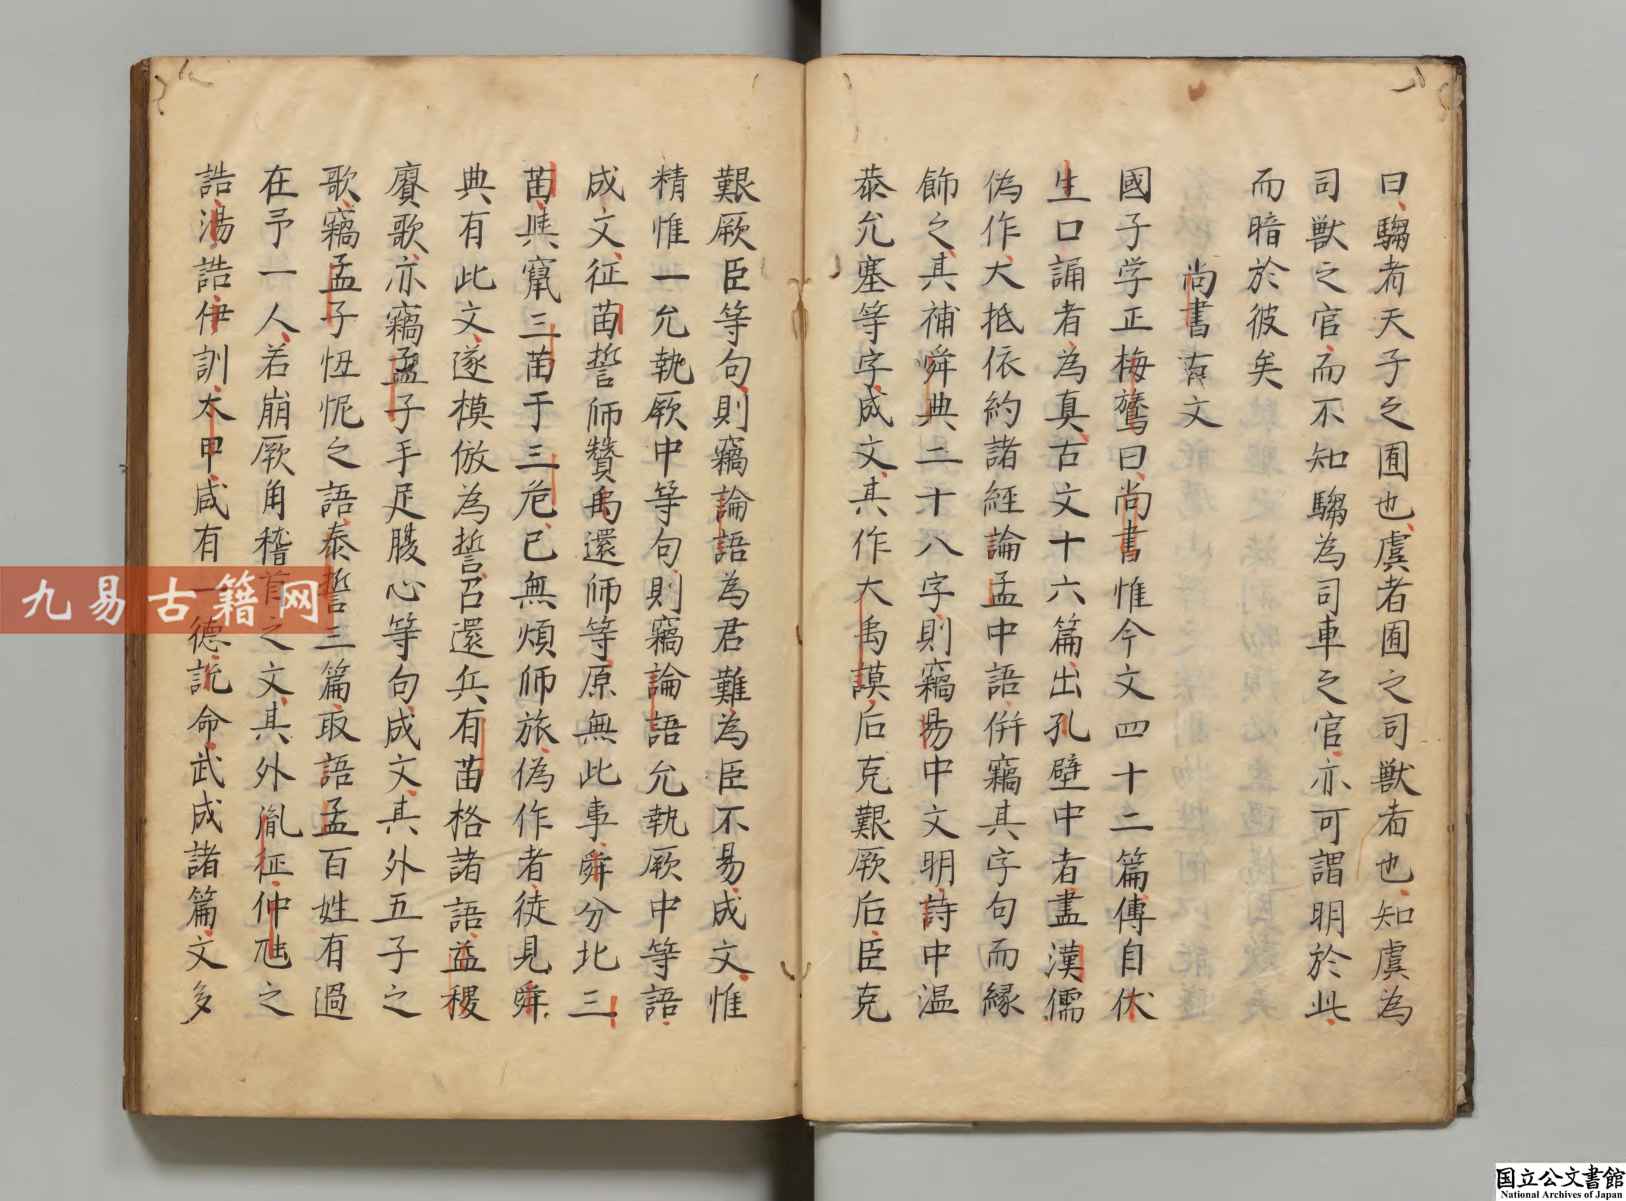 曰騶者天子之囿也虞者囿之司獸者也知虞為
司獸之官而不知騶為司車之官亦可謂明於此
而暗於彼矣
尚書古文
國子学正梅鷟曰尚書惟今文四十二篇傳自伏
生口誦者為真古文十六篇出孔壁中者盡漢儒
偽作大抵依約諸經論孟中語併竊其字句而緣
飾之其補舜典二十八字則竊易中文明詩中温
恭允塞等字成文其作大禹謨后克艱厥后臣克
艱厥臣等句則竊論語為君難為臣不易成文惟
精惟一允執厥中等句則竊論語允執厥中等語
成文征苗誓師贊禹還師等原無此事舜分北三
苗與竄三苗于三危已無煩師旅偽作者徒見舜
典有此文遂模倣為誓召還兵有苗格諸語益稷
賡歌亦竊孟子手足腹心等句成文其外五子之
歌竊孟子忸怩之語泰誓三篇取語孟百姓有過
在予一人若崩厥角稽首之文其外胤征仲虺之
誥湯誥伊訓太甲咸有一德説命武成諸篇文多
九易古籍网
国立公文書館
National Archives of Japan